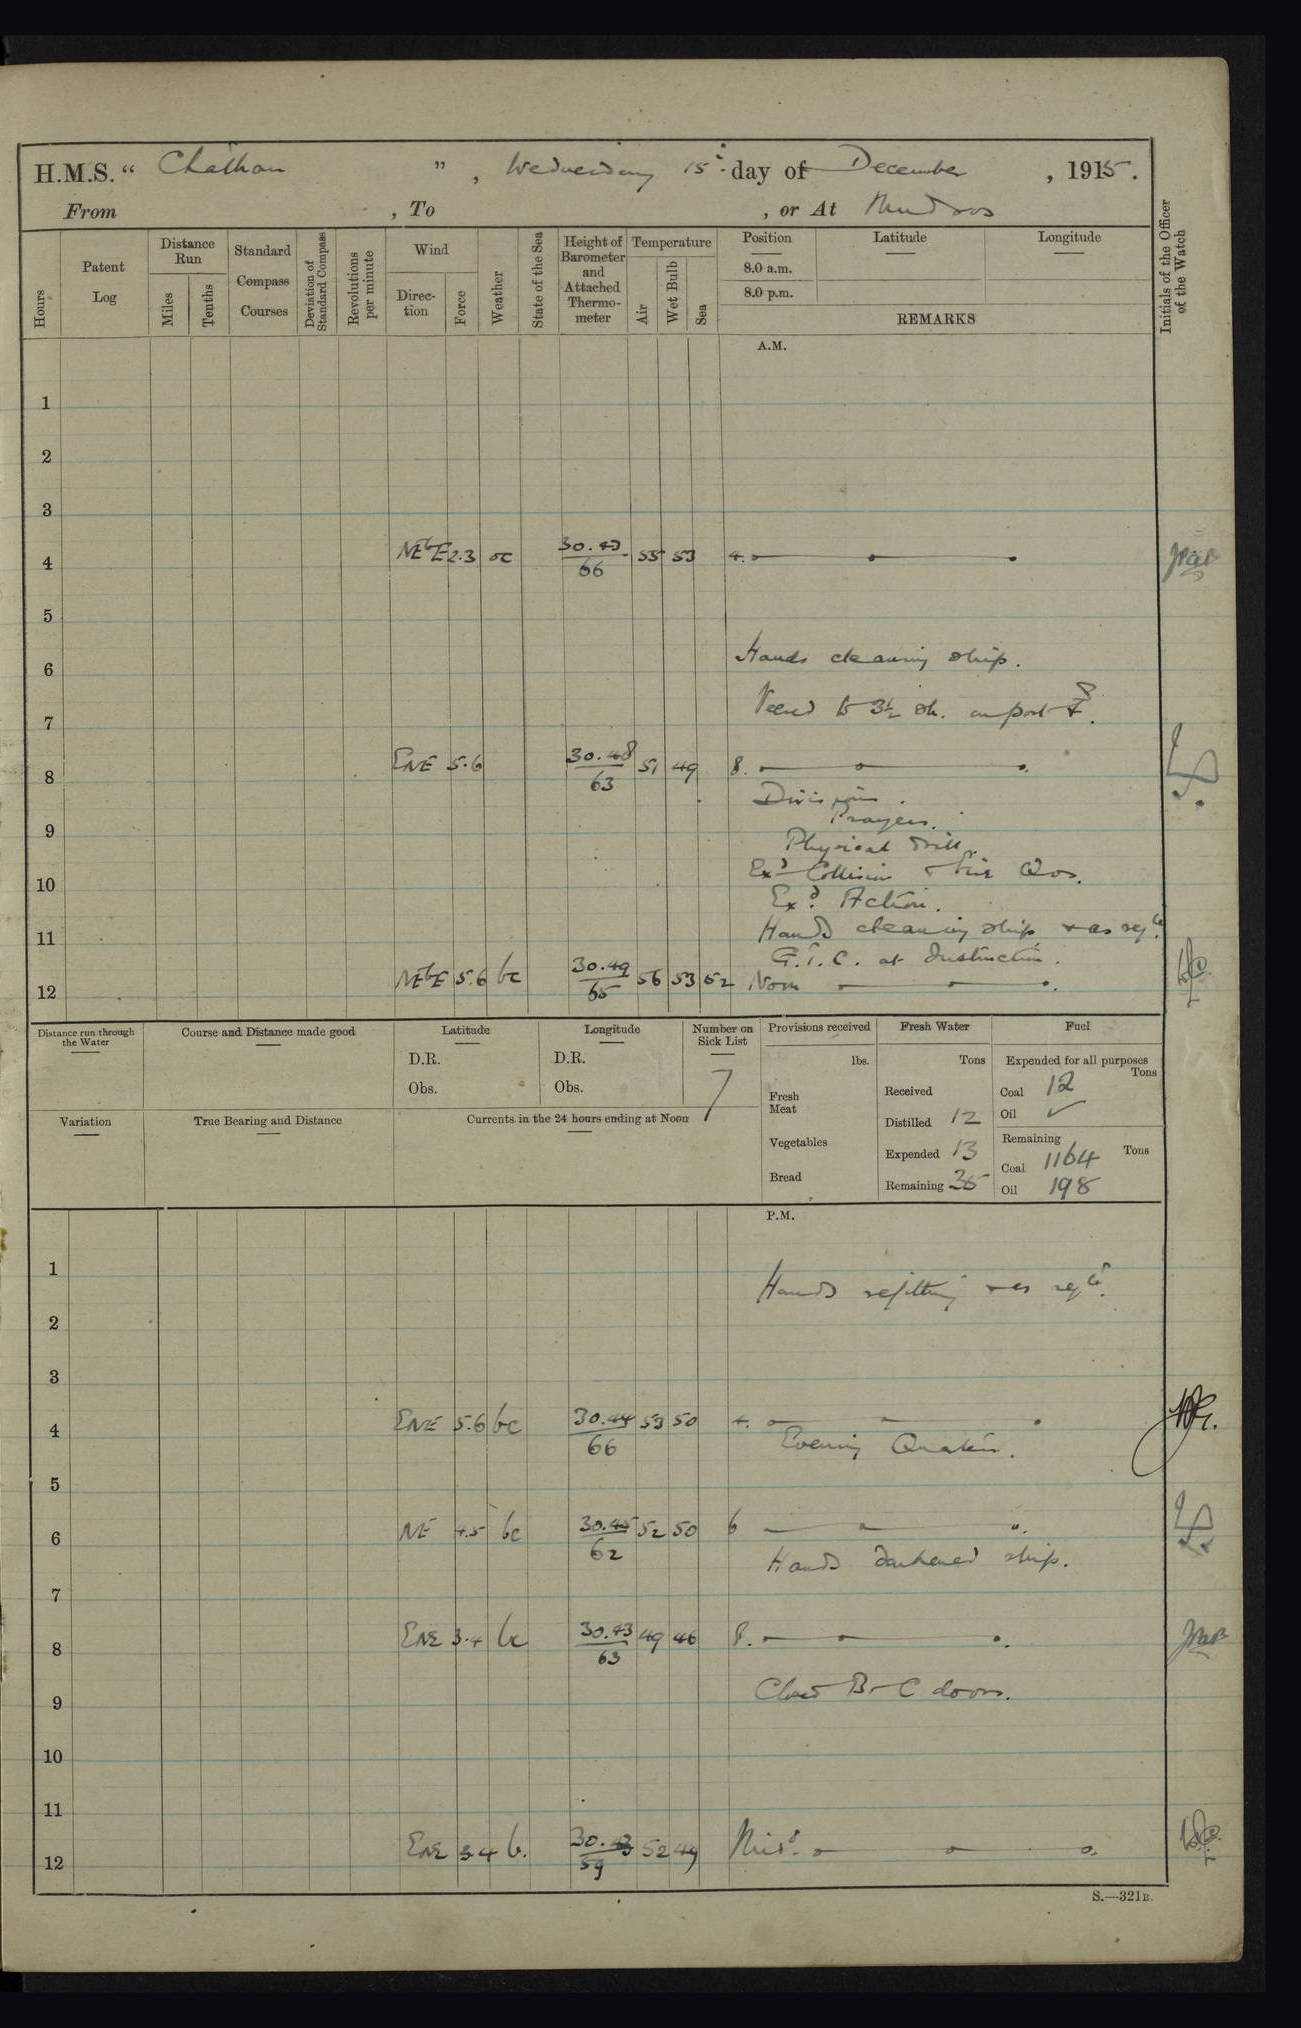 H.M.S. “ Chatham ” , Wednesday 15th day of December , 1915.
From , To , or At Mudros
Hours
Patent Log
Distance Run
Miles
Tenths
Standard Compass Courses
Deviation of Standard Compass
Revolutions per minute
Wind
Direction
Force
Weather
State of the Sea
Height of Barometer and Attached Thermometer
Temperature
Air
Wet Bulb
Sea
Position Latitude Longitude
8.0 a.m.
8.0 p.m.
REMARKS
Initials of the Officer of the Watch
A.M.
1
2
3
4 NEbE 2.3 oc 30.47 66 55 53 4.
5
6 Hands cleaning ship.
7 Veered to 3½ sh. on port
8 ENE 5.6 30.48 63 51 49 8.
Divisions.
9 Prayers.
Physical Drill.
10 Exd Collision & Fire Qrs.
Exd. Action.
11 Hands cleaning ship & as reqte.
G.T.C. at Instruction.
12 NEbE 5.6 bc 30.49 65 56 53 52 Noon
Distance run through the Water
Course and Distance made good
Latitude
D.R.
Obs.
Longitude
D.R.
Obs.
Number on Sick List
7
Provisions received
lbs.
Fresh Meat
Vegetables
Bread
Fresh Water
Tons
Received
Distilled 12
Expended 13
Remaining 35
Fuel
Expended for all purposes
Tons
Coal 12
Oil ✓
Remaining
Tons
Coal 1164
Oil 198
Variation
True Bearing and Distance
Currents in the 24 hours ending at Noon
P.M.
1 Hands refitting & as reqte.
2
3
4 ENE 5.6 bc 30.44 66 53 50 4.
Evening Quarters.
5
6 NE 4.5 bc 30.45 62 52 50 6
Hands darkened ship.
7
8 ENE 3.4 bc 30.43 63 49 46 8.
9 Closed B & C doors.
10
11
12 ENE 3.4 b. 30.43 59 52 49 Midt.
S.—321B.